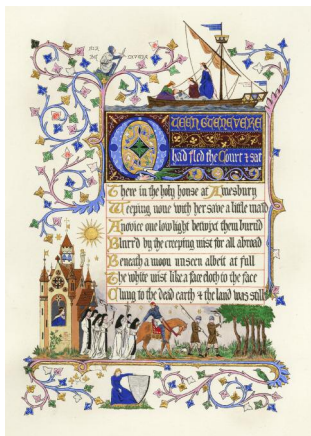 QUEEN GUENEVERE
had fled the Court & sat
There in the holy house at Amesbury
Weeping none with her save a little maid
A novice one low light betwixt them burn'd
Blurr'd by the creeping mist for all abroad
Beneath a moon unseen albeit at full
The white mist like a face cloth to the face
Clung to the dead earth & the land was still